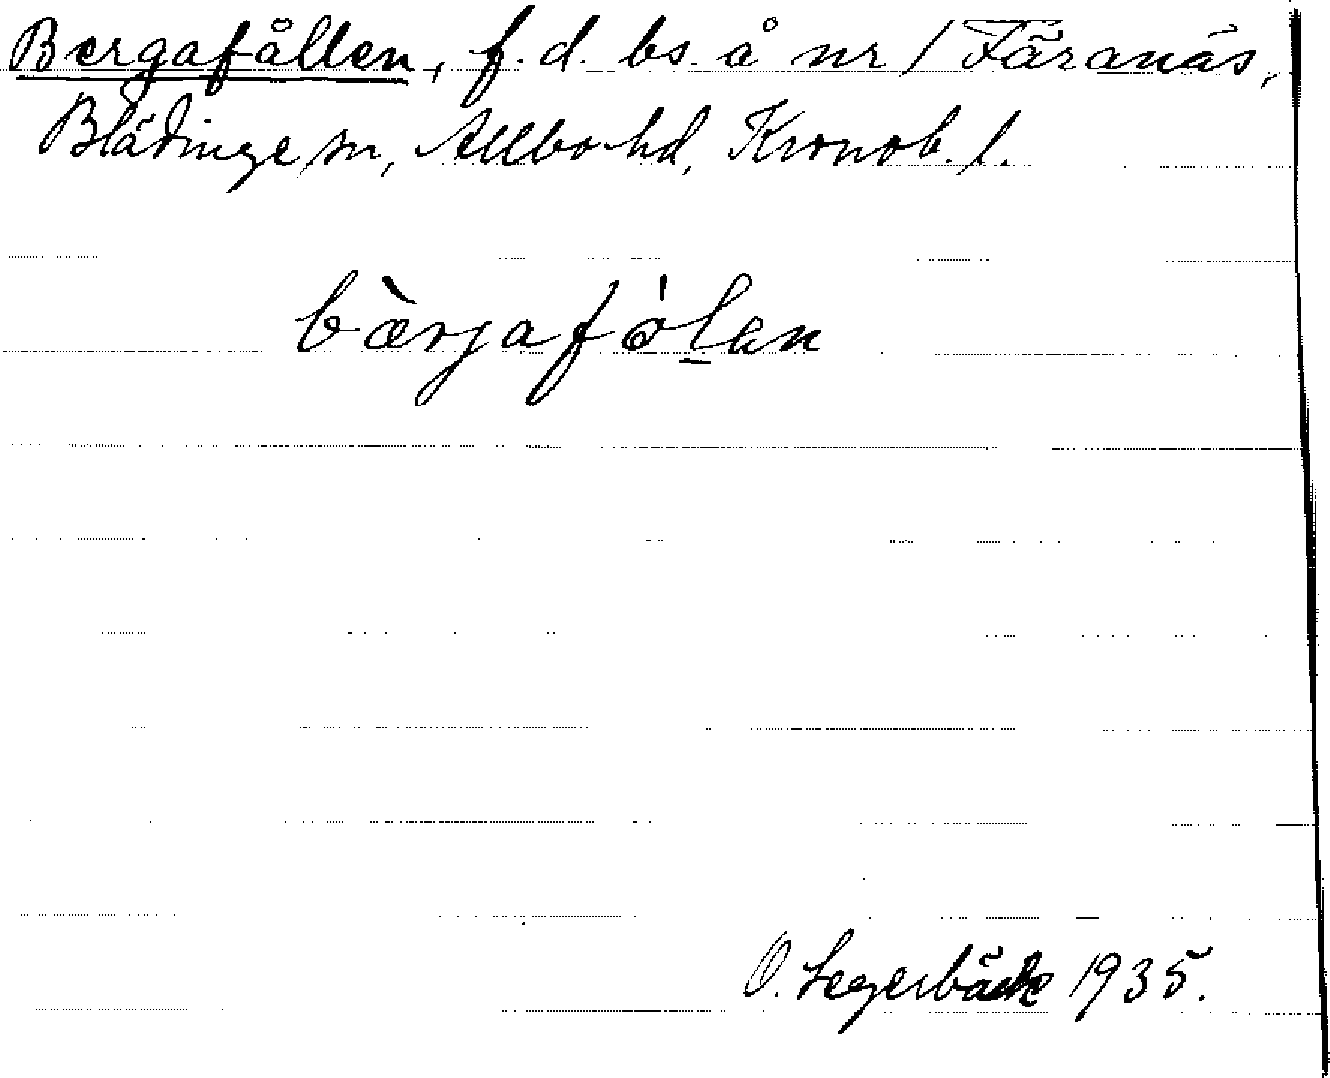 Bergafållen, f.d. bs. å nr 1 Färanäs,
Blädinge sn, Allbo hd, Kronob. l.
bàrjafo̍lan
O. Legerbäck 1935.